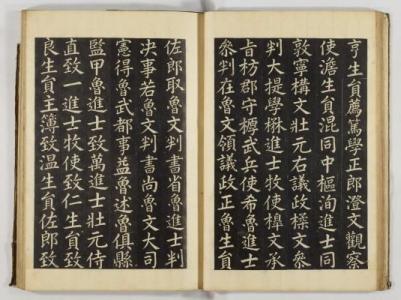 亨生貟薦篤學正郎澄文觀察
使澹生貟混同中樞洵進士同
敦寧構文壯元右議政樣文叅
判大提學櫾進士牧使橰文承
旨枋郡守樽武兵使希魯進士
叅判在魯文領議政正魯生貟
佐郎取魯文判書省魯進士判
决事若魯文判書尚魯文大司
憲得魯武都事益魯述魯俱縣
監甲魯進士致萬進士壯元侍
直致一進士牧使致仁生貟致
良生貟主簿致温生貟佐郎致